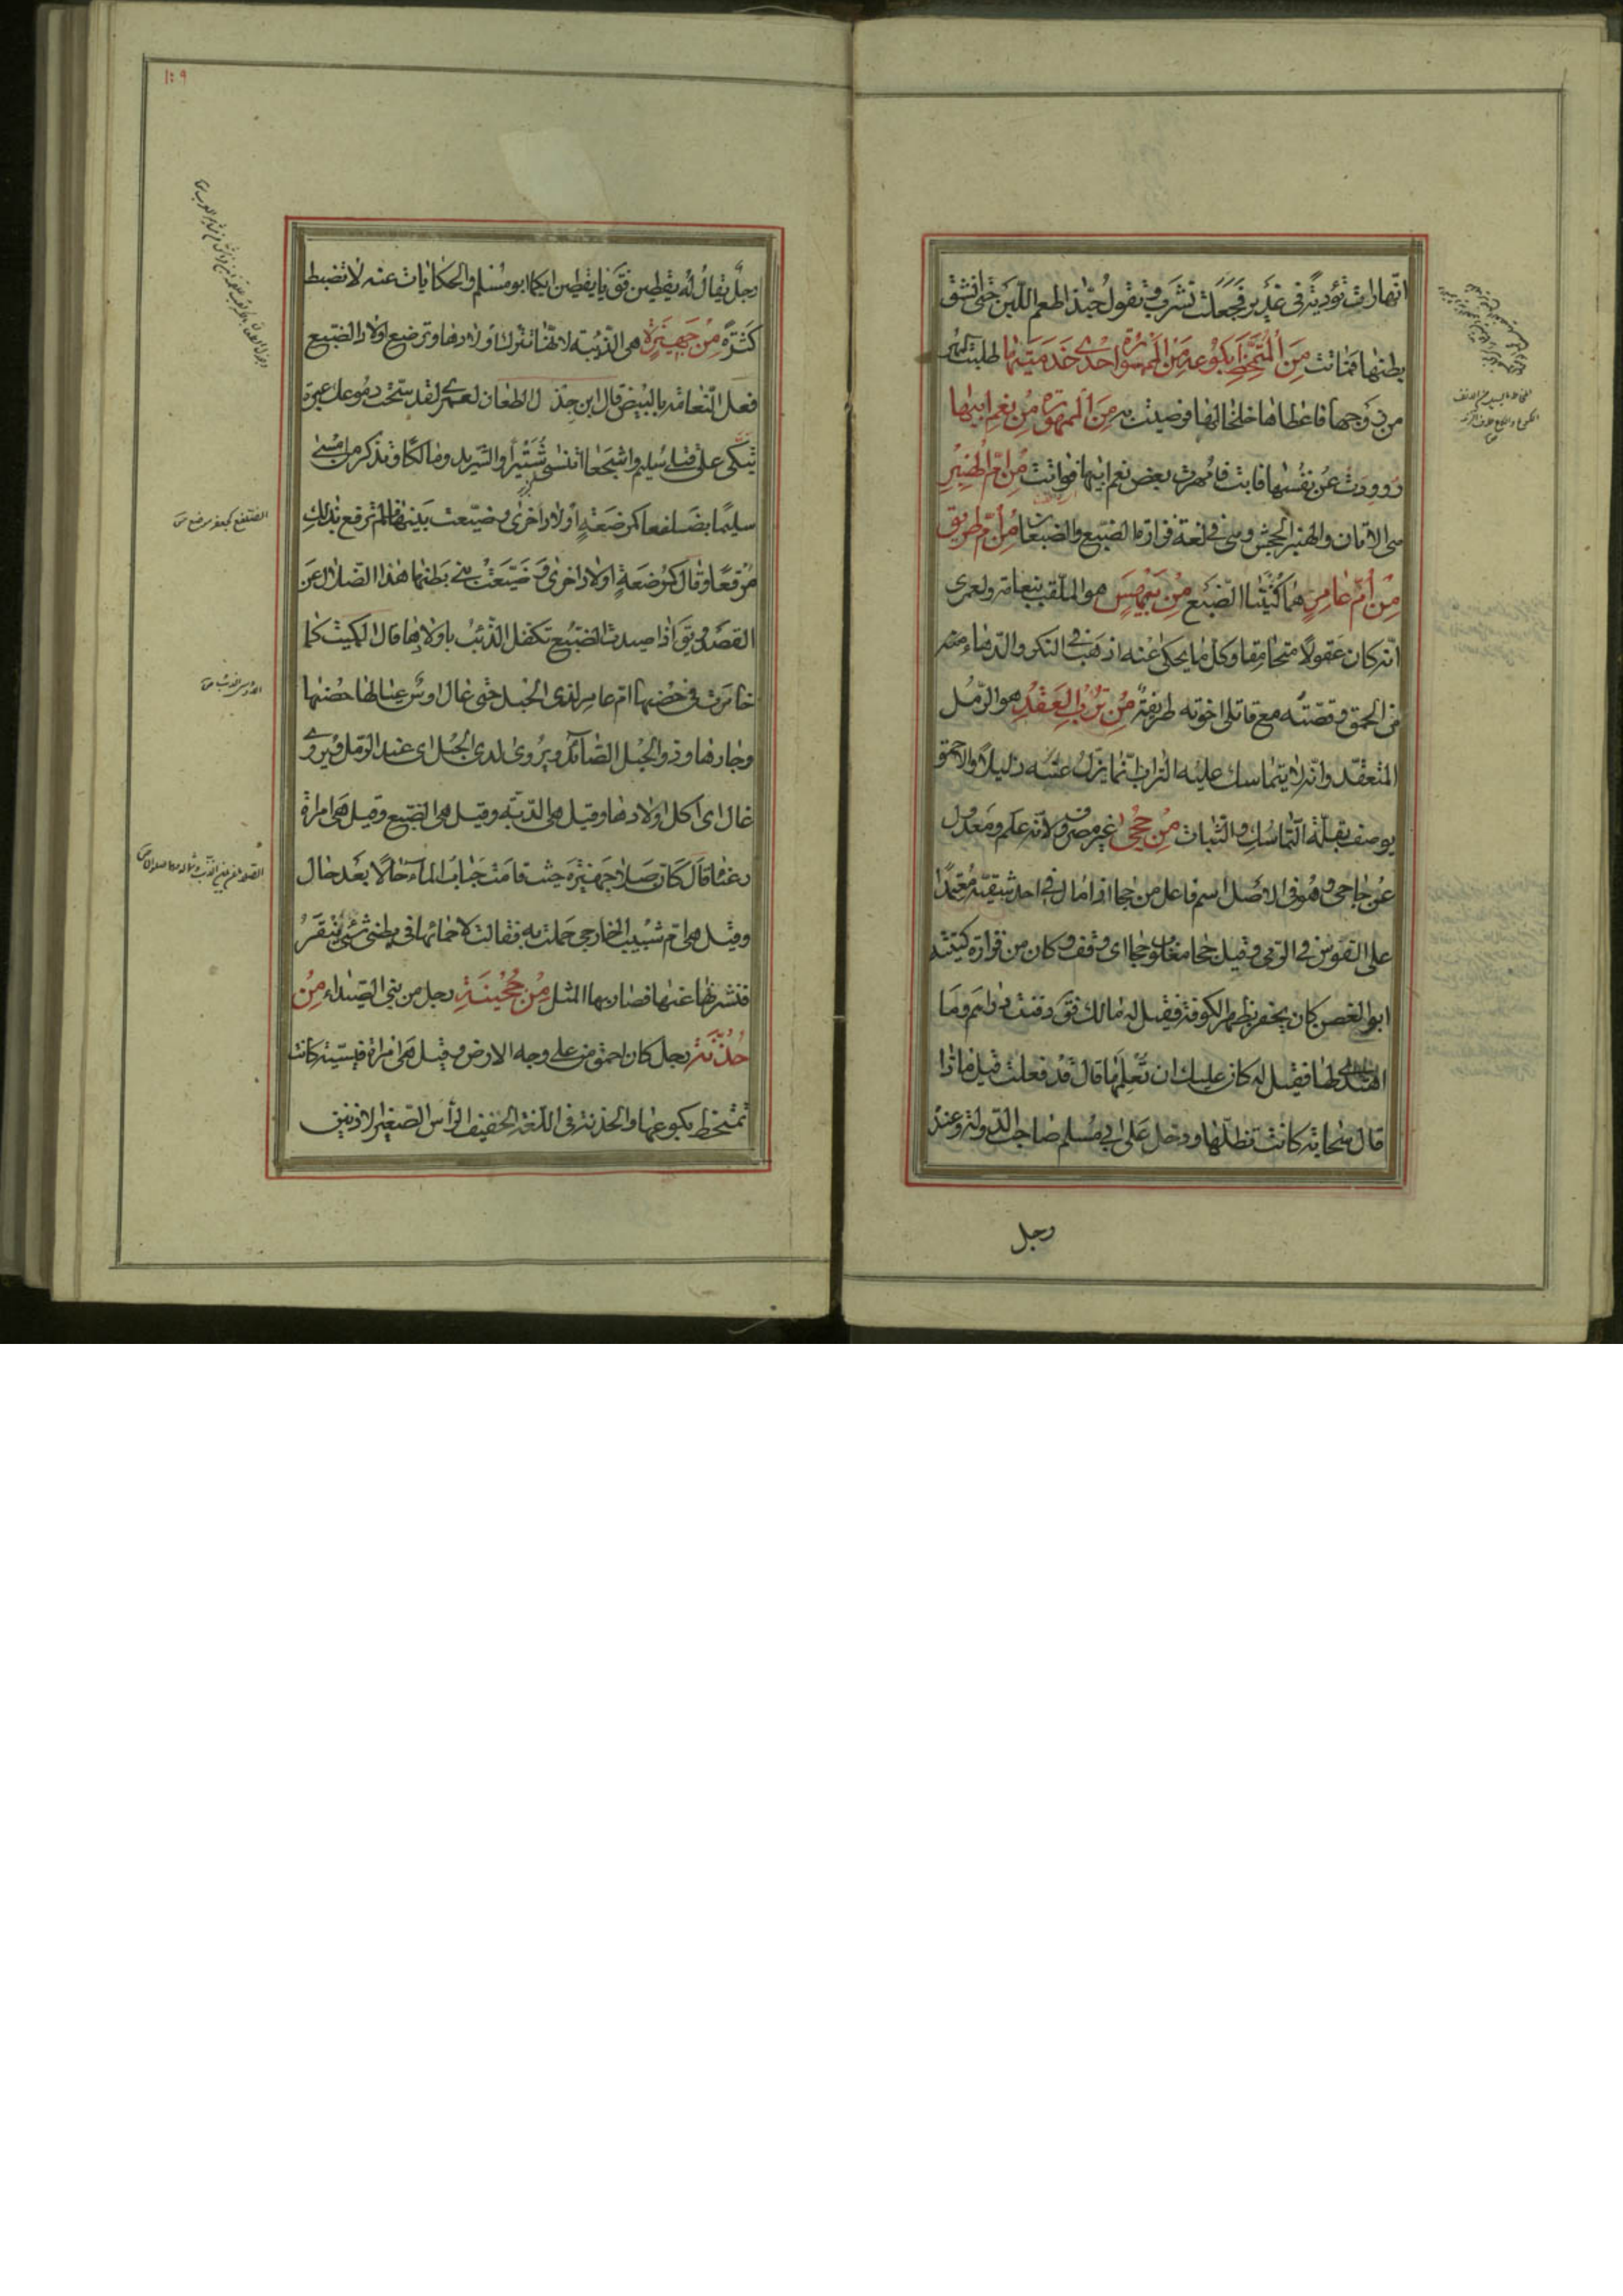 انها رات تؤدية في غدير فجعلت تشرف وتقول حبذا طعم اللبن حتى انشق
بطنها فماتت من الممتخط بكوعه من الممهورة احدى خدمتيها طلبت المهر
من زوجها فاعطاها خلخالها فرضيت به من الممهورة من نعم ابيها
روودت عن نفسها فابت فامهرت بعض نعم ابيها فواتت من ام الهنبر
هي الاتان والهنبر الجحش وهي في لغة فزارة الضبع والضبعان من ام طريق
من ام عامر هما كنيتا الضبع من بيهس هو الملقب بنعامة ولعمري
انه كان عقولا متحامقا وكل ما يحكى عنه اذهب في النكر والدهاء منه
في الحمق وقصته مع قاتلي اخوته طريفة من ترب العقد هو الرمل
المتعقد وانه لا يتماسك عليه التراب انما يزل عنه زليلا والاحمق
يوصف بقلة التماسك والثبات من جحى غير مصروف لانه علم ومعدول
عن جاحي وهو في الاصل اسم فاعل من جحا اذا مال في احد شقيه معتمدا
على القوس في الرمي وقيل جحا مقلوب حجا اي وقف وكان من فزارة كنيته
ابو الغصن كان يحفر بظهر الكوفة فقيل له مالك فق دفنت دراهم وما
اهتدي لها فقيل له كان عليك ان تعلمها قال قد فعلت قيل ماذا
قال سحابة كانت تظلها ودخل على ابي مسلم صاحب الدولة وعنده
رجل
١٠٩
رجل يقال له يقطين فق يا يقطين ايكما ابو مسلم والحكايات عنه لا تضبط
كثرة من جهيزة هي الذئبة لانها تترك اولادها وترضع اولاد الضبع
فعل النعامة بالبيض قال ابن جذل الطعان لعمري لقد سحت دموعك عبرة
تبكى على قتلى سليم واشجعا اتنسى شتيرا والشريد ومالكا وتذكر من امسى
سليما بضلفعا كمرضعة اولاد اخرى وضيعت بنيها فلم ترقع بذلك
مرقعا وقال كمرضعة اولاد اخرى وضيعت بني بطنها هذا الضلال عن
القصد ويق اذا صيدت الضبع تكفل الذئب باولادها قال الكميت كما
خامرت في حضنها ام عامر لذى الحبل حتى عال اوس عيالها حضنها
وجارها وذو الحبل الصائد ويروى لدى الحبل اي عند الرمل ويروى
غال اي اكل اولادها وقيل هي الدبة وقيل هي الضبع وقيل هي امراة
رعناء قال كان صلا جهيزة حيث قامت حباب الماء حالا بعد حال
وقيل هي ام شبيب الخارجي حملت به فقالت لاحمائها في بطني شيء ينقز
فنشرنها عنها فصار بها المثل من حجينة رجل من بني الصيداء من
حذنة رجل كان احمق من على وجه الارض وقيل هي امراة قيسية كانت
تمتخط بكوعها والحذنة في اللغة الخفيف الرأس الصغير الاذنين
الضلفع كجعفر موضع ق
الاوس الذئب ق